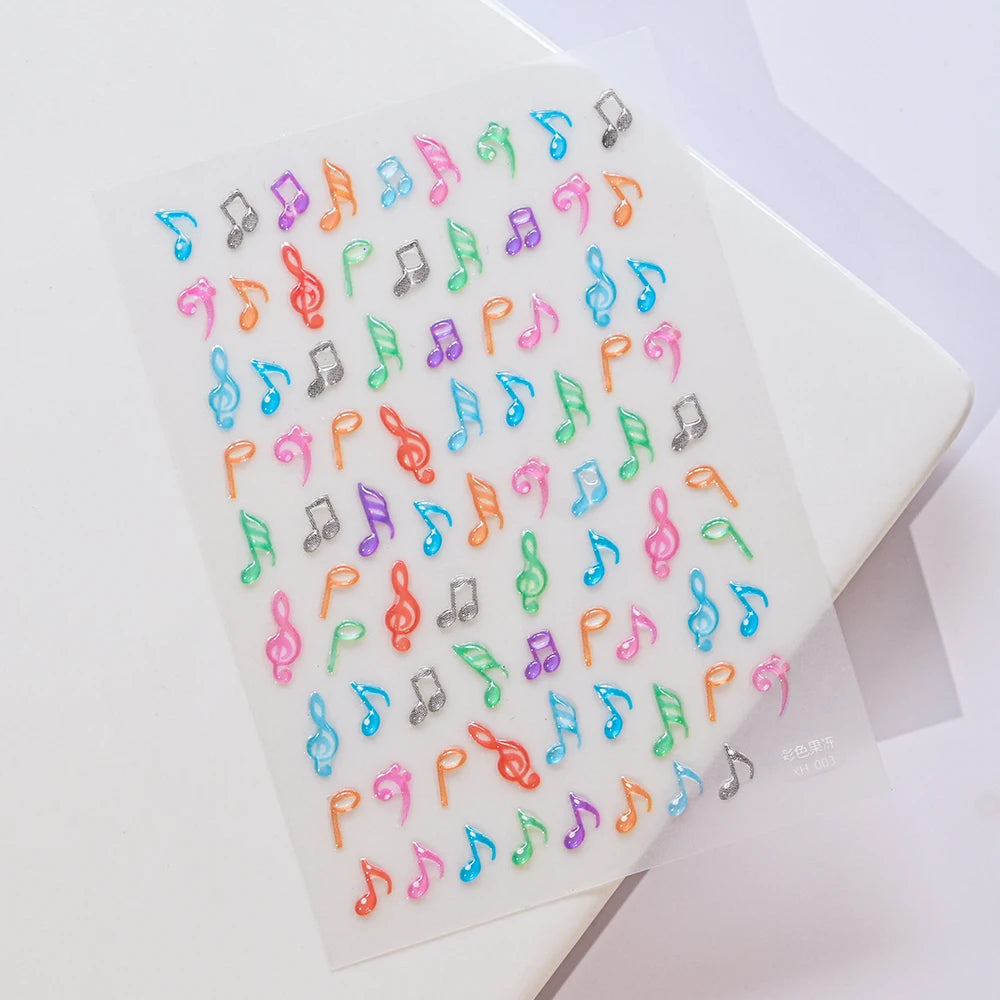 彩色果冻
XH-003